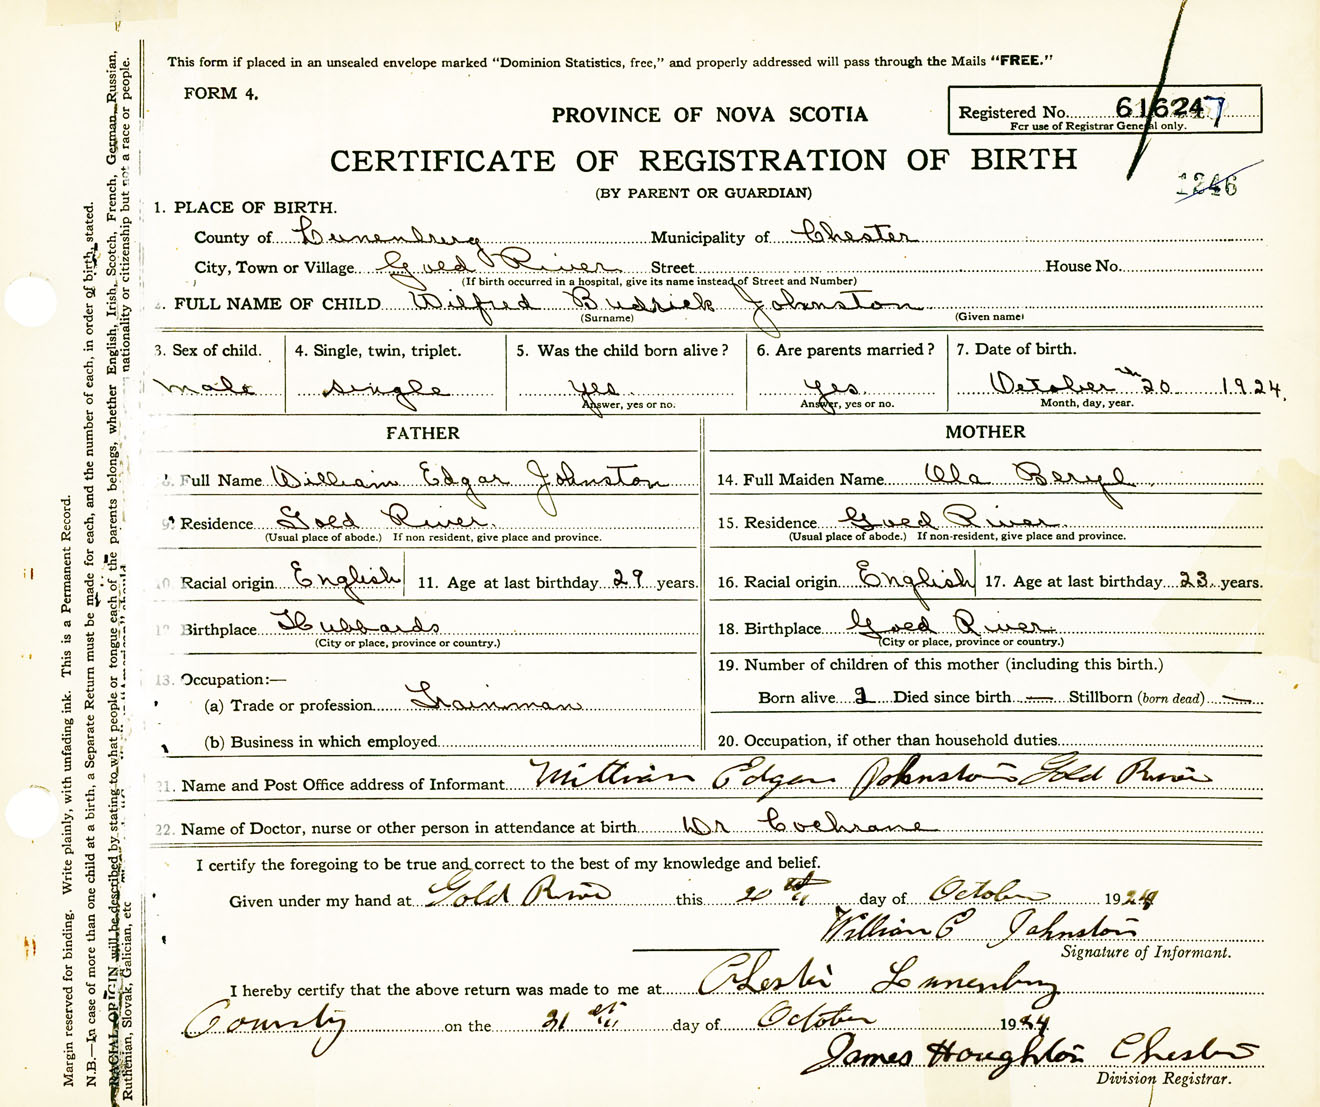 This form if placed in an unsealed envelope marked "Dominion Statistics, free," and properly addressed will pass through the Mails "FREE."
FORM 4.
PROVINCE OF NOVA SCOTIA
Registered No. 616247
For use of Registrar General only.
CERTIFICATE OF REGISTRATION OF BIRTH
1246
(BY PARENT OR GUARDIAN)
1. PLACE OF BIRTH.
County of Lunenburg Municipality of Chester
City, Town or Village Gold River Street House No.
(If birth occurred in a hospital, give its name instead of Street and Number)
FULL NAME OF CHILD Wilfred Burdick Johnston
(Surname) (Given name)
3. Sex of child. 4. Single, twin, triplet. 5. Was the child born alive? 6. Are parents married? 7. Date of birth.
male single yes yes October 20th 1924,
Answer, yes or no. Answer, yes or no. Month, day, year.
FATHER MOTHER
8. Full Name William Edgar Johnston 14. Full Maiden Name Ola Beryl
9. Residence Gold River. 15. Residence Gold River.
(Usual place of abode.) If non resident, give place and province. (Usual place of abode.) If non-resident, give place and province.
10. Racial origin English 11. Age at last birthday 29 years. 16. Racial origin English 17. Age at last birthday 23 years.
12 Birthplace Hubbards 18. Birthplace Gold River
(City or place, province or country.) (City or place, province or country.)
13. Occupation:— 19. Number of children of this mother (including this birth.)
(a) Trade or profession Trainman Born alive Died since birth — Stillborn (born dead) —
(b) Business in which employed 20. Occupation, if other than household duties
21. Name and Post Office address of Informant William Edgar Johnston Gold River
22. Name of Doctor, nurse or other person in attendance at birth Dr Cochrane
I certify the foregoing to be true and correct to the best of my knowledge and belief.
Given under my hand at Gold River this 20th day of October 1924
William E Johnston
Signature of Informant.
I hereby certify that the above return was made to me at Chester Lunenburg
County on the 21st day of October 1924
James Houghton Chester
Division Registrar.
Margin reserved for binding. Write plainly, with unfading ink. This is a Permanent Record.
N.B.—In case of more than one child at a birth, a Separate Return must be made for each, and the number of each, in order of birth, stated.
RACIAL ORIGIN will be described by stating to what people or tongue each of the parents belongs, whether English, Irish, Scotch, French, German, Russian,
Ruthenian, Slovak, Galician, etc nationality or citizenship but not a race or people.